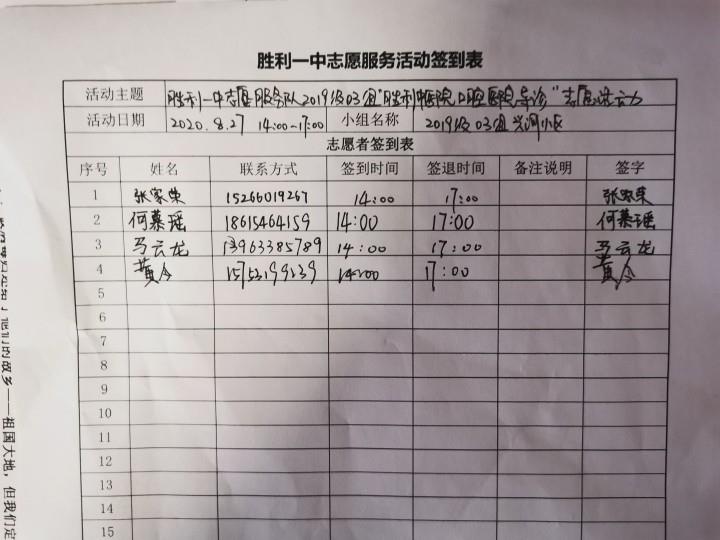 胜利一中志愿服务活动签到表
活动主题 胜利一中志愿服务队2019级03组"胜利中医院口腔医院导诊"志愿活动
活动日期 2020.8.27 14:00-17:00 小组名称 2019级03组兴河小区
志愿者签到表
序号 姓名 联系方式 签到时间 签退时间 备注说明 签字
1 张家荣 15266019267 14:00 17:00 张家荣
2 何慕瑶 18615464159 14:00 17:00 何慕瑶
3 马云龙 13963385789 14:00 17:00 马云龙
4 黄今 15753199239 14:00 17:00 黄今
5
6
7
8
9
10
11
12
13
14
15
他们的故乡——祖国大地，但我们定